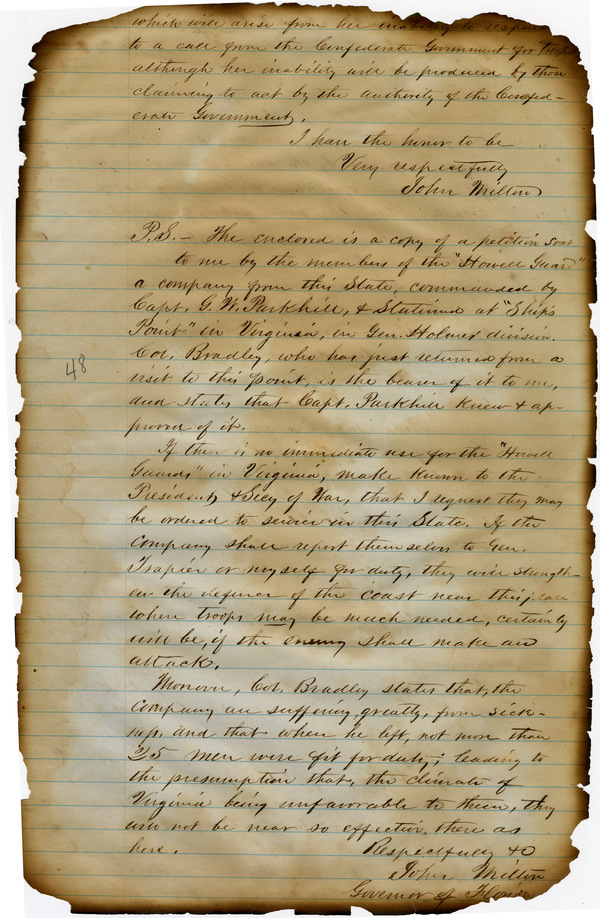 which will arise from her inability to respond
to a call from the Confederate Government for troops
although her inability will be produced by those
claiming to act by the authority of the Confed-
erate Government.
I have the honor to be
Very respectfully
John Milton
P.S. - The enclosed is a copy of a petition sent
to me by the members of the "Howell Guard"
a company from this State, commanded by
Capt. G. W. Parkhill, & Stationed at "Ship
Point" in Virginia, in Gen. Holmes division.
Col. Bradley, who has just returned from a
visit to this point, is the bearer of it to me,
and states that Capt. Parkhill knew & ap-
proved of it.
48
If there is no immediate use for the "Howell
Guards" in Virginia, make known to the
President, & Secy of War, that I request they may
be ordered to service in this State. If the
company shall report themselves to Gen.
Trapier or myself for duty, they will strength-
en the defences of the coast near this place
where troops may be much needed, certainly
will be, if the enemy shall make an
attack.
Moreover, Col. Bradley states that, the
company are suffering, greatly, from sick-
ness, and that when he left, not more than
25 men were fit for duty; leading to
the presumption that, the climate of
Virginia being unfavorable to them, they
will not be near so effective there as
here.
Respectfully &c
John Milton
Governor of Florida